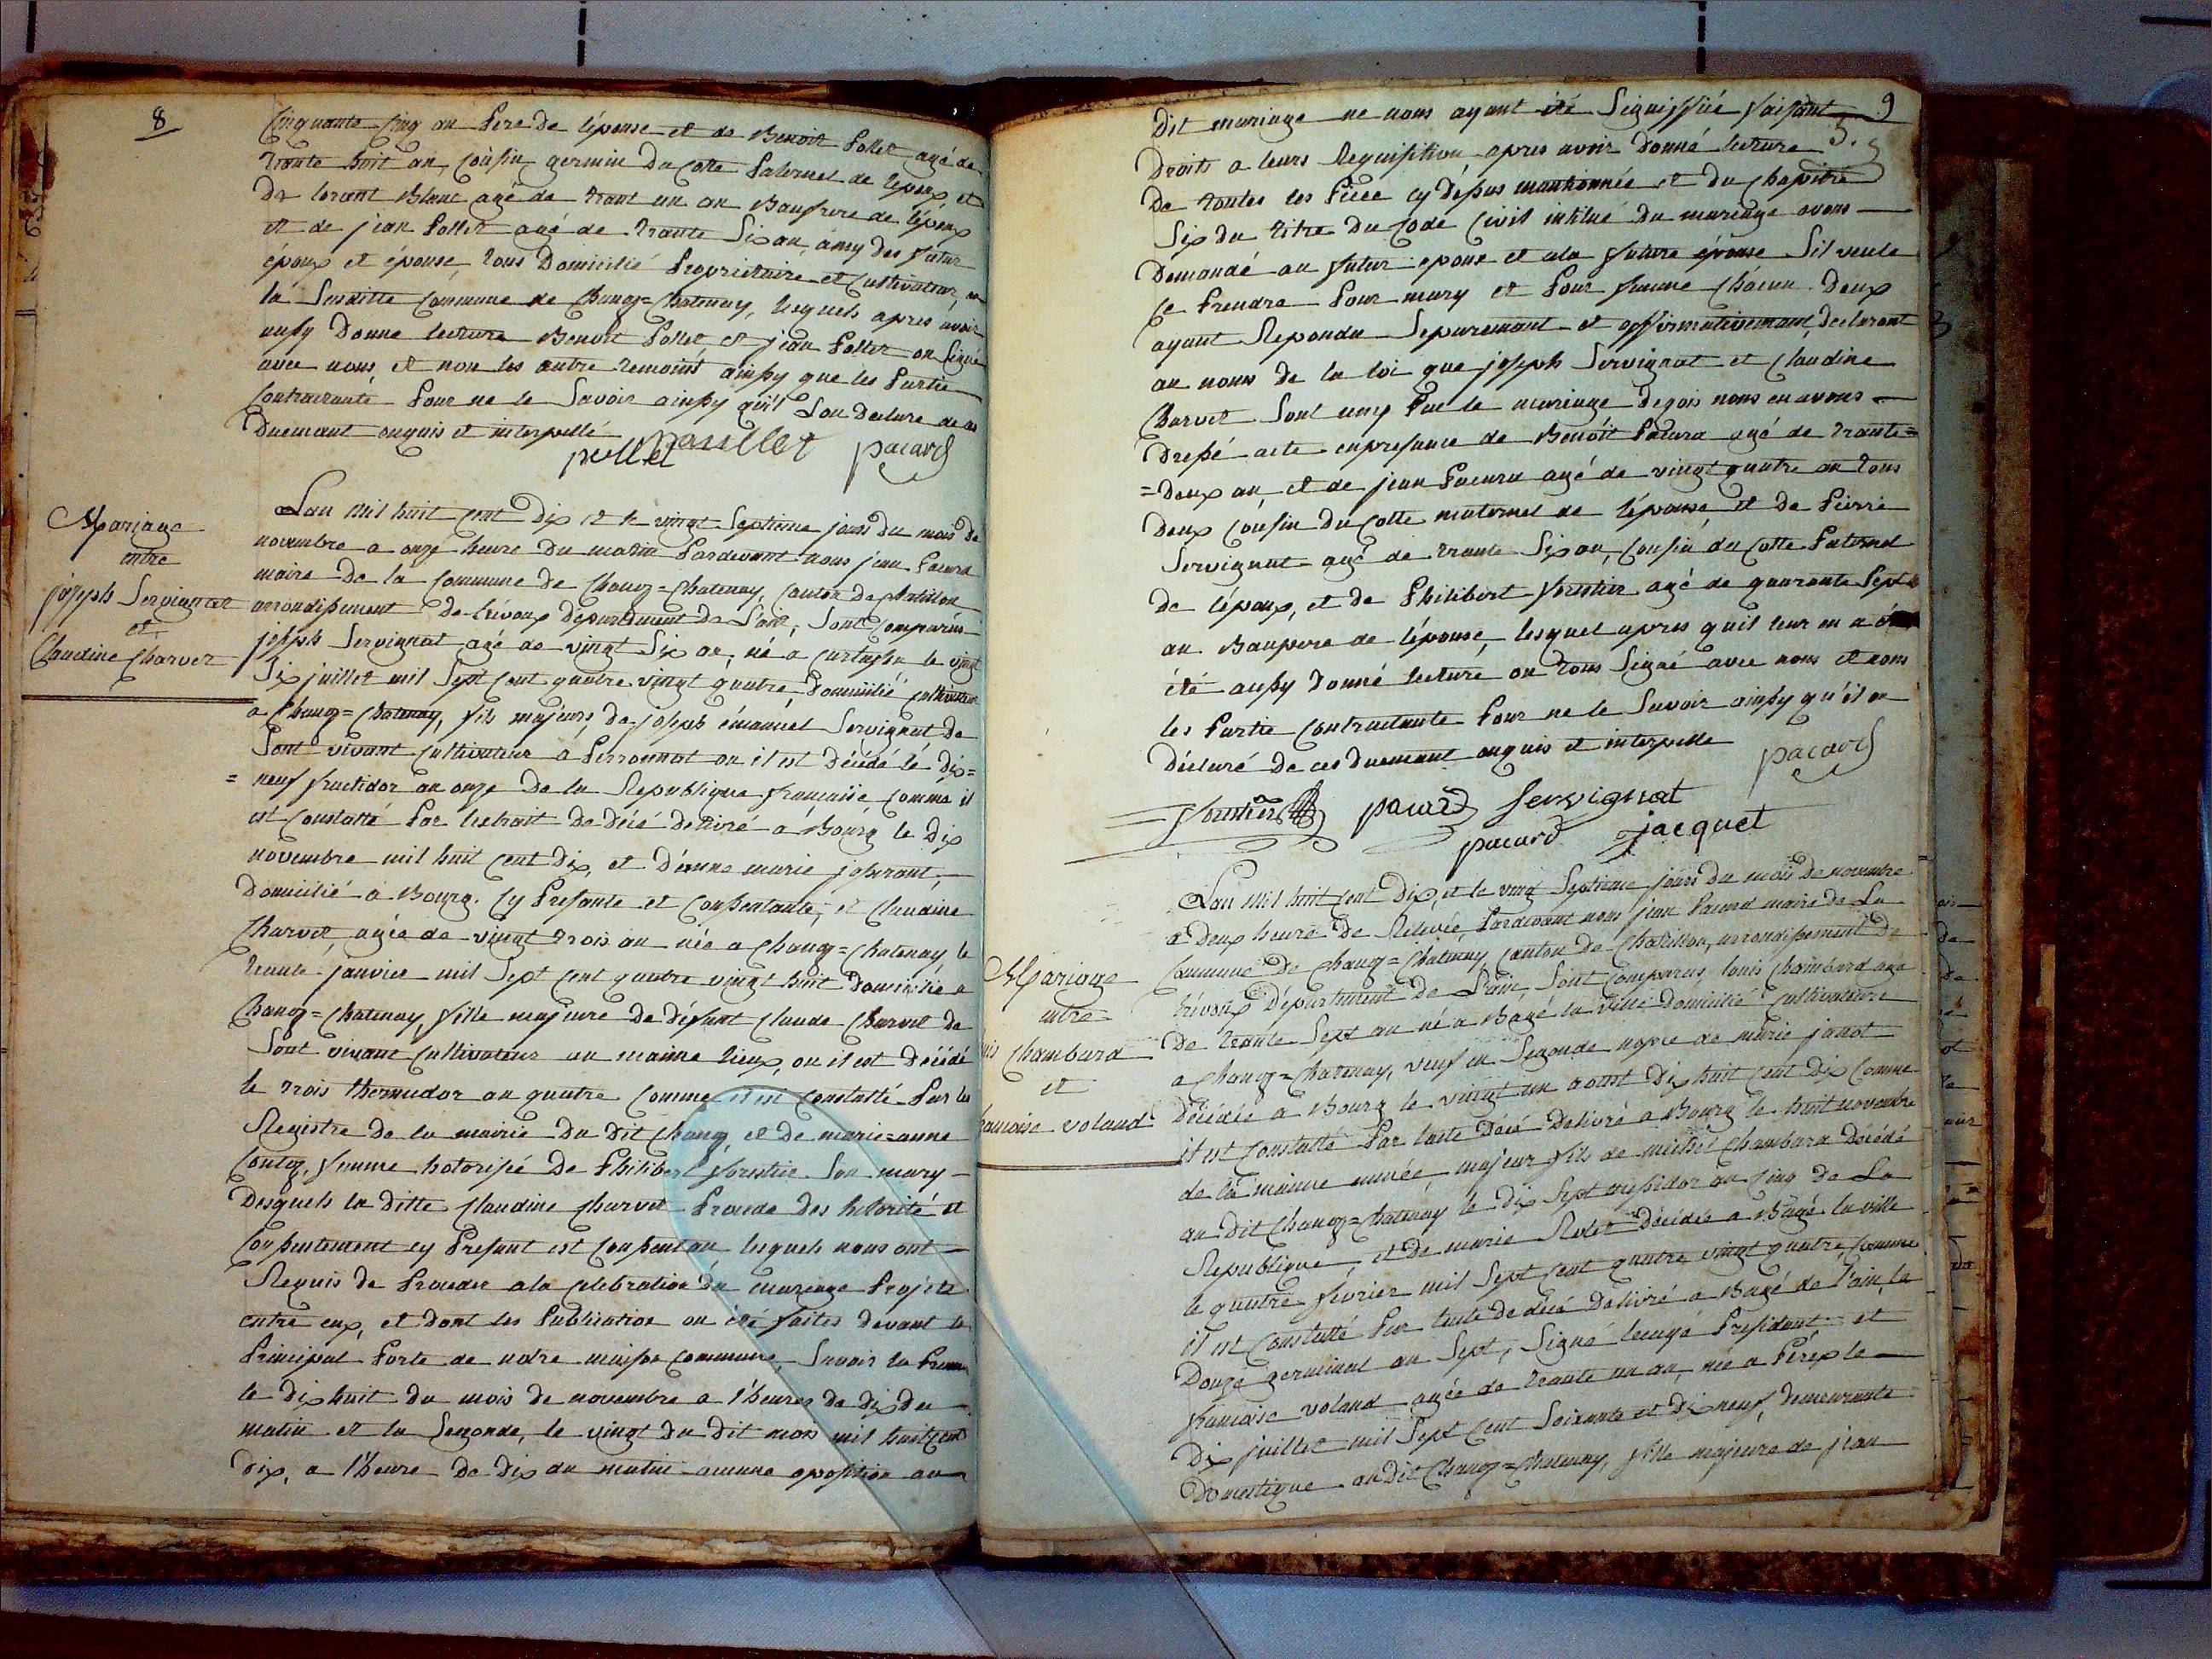 8
Cinquante Cinq an Pere de l'épouse et de Benoit Pollet agé de
trante huit an, Cousin germin du Cotte Paternel de l'époux et
de lorant Blanc agé de trant un an Baufrere de l'époux
et de jean Pollet agé de trante Six an, amy des futur
époux et épouse, tous Domicilié Proprietaire et Cultivateur, en
la Susditte Commune de Chanoz=Chatenay, lesquels apres avoir
aussy Donné lecture Benoit Pollet, et jean Pollet on Signé
avec nous et non les autre temoint ainssy que les Partie
Contractante Pour ne le Savoir ainssy qu'il l'on declare de ce
Duement enquis et interpellé
pollet pacard
Mariage
entre
joseph Servignat
et
Claudine Charvet
Lan Mil huit Cent Dix et le vingt Septieme jours du mois de
novembre a onze heure du matin Pardevant nous jean Pacard
maire de la Commune de Chanoz=Chatenay, Canton de Chatillon
arrondissement de trévoux département de l'ain, Sont Comparus
joseph Servignat agé de vingt Six an, né a Curtafon le vingt
Six juillet mil Sept Cent quatre vingt quatre, Domicilié Cultivateur
a Chanoz=Chatenay, fils majeurs de joseph émanuel Servignat de
Sont vivant Cultivateur a Perronnat ou il est Décédé le dix=
=neuf fructidor an onze de la Republique françaisse Comme il
est Constatté Par l'extrait de décé délivré a Bourg le Dix
novembre mil huit Cent Dix, et d'anne marie josserant,
Domicilié a Bourg. Cy Presante et Conssentante, et Claudine
Charvet, agée de vingt trois an née a Chanoz=Chatenay le
trante janvier mil Sept Cent quatre vingt huit Domicilié a
Chanoz=Chatenay, fille majeure de défunt Claude Charvet de
Sont vivant Cultivateur au maime lieux, ou il est Décédé
le trois thermidor an quatre Comme il est Constatté Par les
Registre de la mairie du dit Chanoz, et de marie=anne
femme hotorisé de Philibert forestier Son mary
Desquels la ditte Claudine Charvet Procede des hotorité et
Conssentement cy Presant est Conssentan, lesquels nous ont
Requis de Proceder a la Celebration du mariage Projeté
entre eux, et dont les Publication on été faites devant la
Principal Porte de notre maison Commune, Savoir la Premiere
le dix huit du mois de novembre a l'heures de dix du
matin et la Segonde, le vingt du dit mois mil huit Cent
dix, a l'heure de dix du matin aucune oposition au
9
Dit mariage ne nous ayant été Signiffiée faisant
Droits a leurs Requisition apres avoir donné lecture
De toutes les Piéce cy déssus mantionnée et du Chapitre
Six du titre du Code Civil intitué du mariage avons
Demandé au futur epoux et a la future épouse Sil veule
Ce Prendre Pour mary et Pour femme Chacun Deux
ayant Repondu Separemant et affirmativemant, declarant
au noms de la loi que joseph Servignat et Claudine
Charvet Sont uny Par le mariage De qois nous en avons
Dressé acte en presance de Benoit Pacard agé de trante=
=deux an, et de jean Pacard agé de vingt quatre an tous
deux Cousin du Cotte maternel de l'épouse, et de Pierre
Servignat agé de trante Six an, Cousin du Cotte Paternel
de l'époux, et de Philibert forestier agé de quarante Sept
an Baupere de l'épouse, lesquel apres quil leur en a
été aussy donné lecture on tous Signé avec nous et nom
les Partie Contractante Pour ne le Savoir ainssy qu'il on
déclaré de ces duemant enquis et interpellé
pacard
forestier pacard Servignat
pacard jacquet
Mariage
entre=
Chambard
et
voland
Lan Mil huit Cent Dix, et le vingt Septieme jours du mois de novembre
a Deux heure de Relevée, Pardevant nous jean Pacard maire de La
Commune de Chanoz=Chatenay, Canton de Chatillon, arrondissement de
trévoux Département de L'ain, Sont Comparus, louis Chambard agé
De trante Sept an né a Bagé la ville Domicilié Cultivateure
a Chanoz=Chatenay, veuf en Segonde nopce de marie janot
Décédée a Bourg le vingt un aoust Dix huit Cent Dix Comme
il est Constatté Par lacte Décé Délivré a Bourg le huit novembre
de la maime année, majeur fils de michel Chambard Décédé
au Dit Chanoz=Chatenay le Dix Sept messidor an Cinq de La
Republique, et de marie Décédée a Bagé la ville
le quatre fevrier mil Sept Cent quatre vingt quatre, Comme
il est Constatté Par lacte de décé Délivré a Bagé de l'ain, le
Douze germinal an Sept, Signé President et
françoise voland agée de trante un an, née a Pérex le
Dix juillet mil Sept Cent Soixante et Dix neuf, demeurante
Domestique au Dit Chanoz=Chatenay, fille majeure de jean